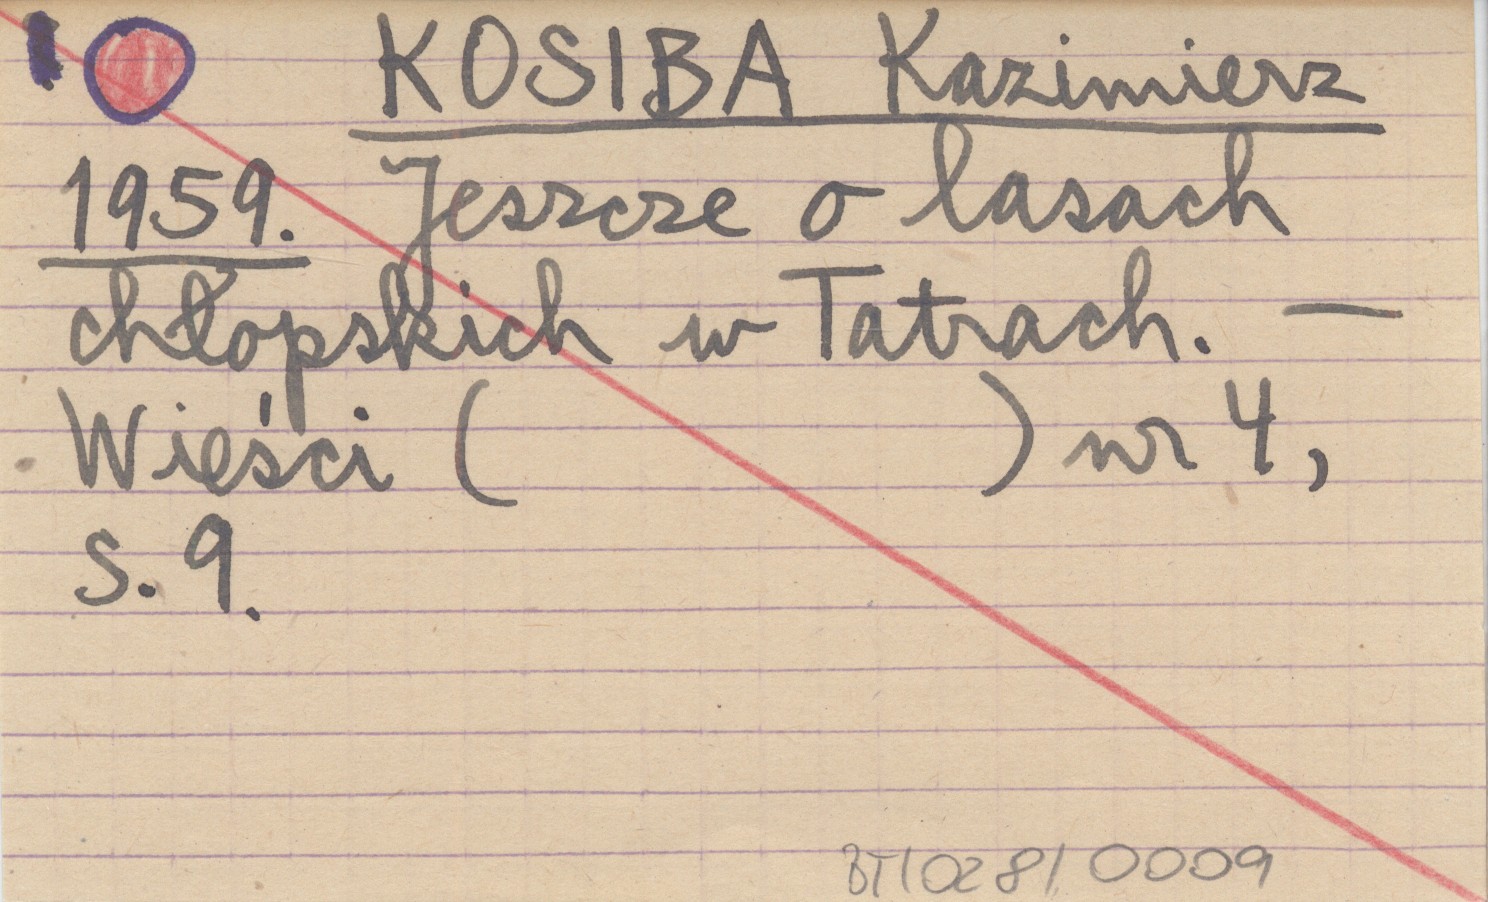 KOSIBA Kazimierz
1959. Jeszcze o lasach
chłopskich w Tatrach. —
Wieści ( ) nr 4,
s. 9.
BT/028/0009